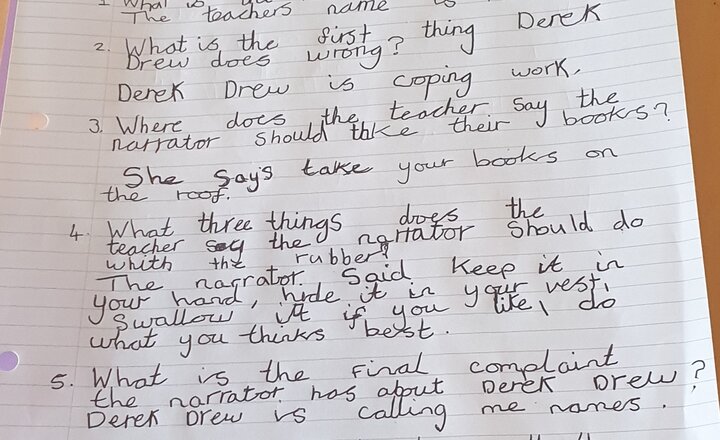 1. What is
The teachers name is
2. What is the first thing Derek
Drew does wrong?
Derek Drew is coping work.
3. Where does the teacher say the
narrator should take their books?
She say's take your books on
the roof.
4. What three things does the
teacher say the narrator should do
whith the rubber?
The nagrator. Said keep it in
your hand, hide it in your vest,
Swallow it if you like, do
what you thinks best.
5. What is the final complaint
the narrator has about Derek Drew?
Derek Drew is calling me names.